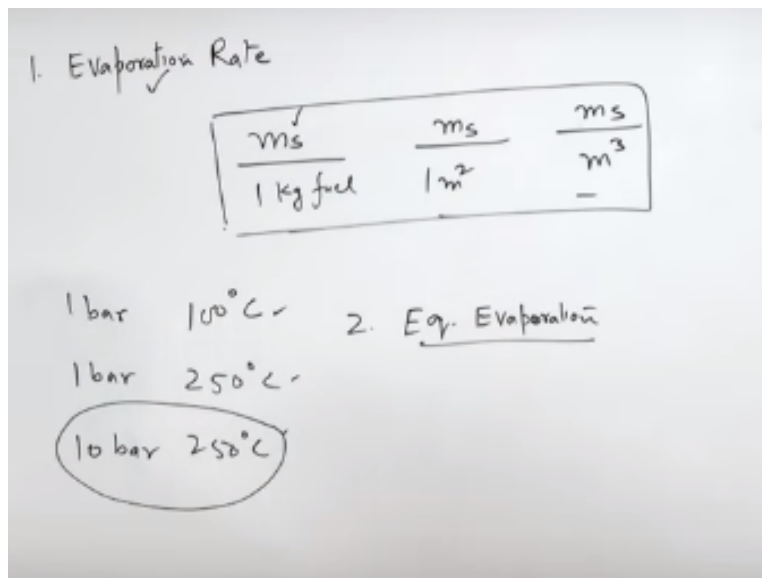 1. Evaporation Rate
ms ms ms
1 kg fuel 1 m² m³
1 bar 100°C
1 bar 250°C
10 bar 250°C
2. Eq. Evaporation